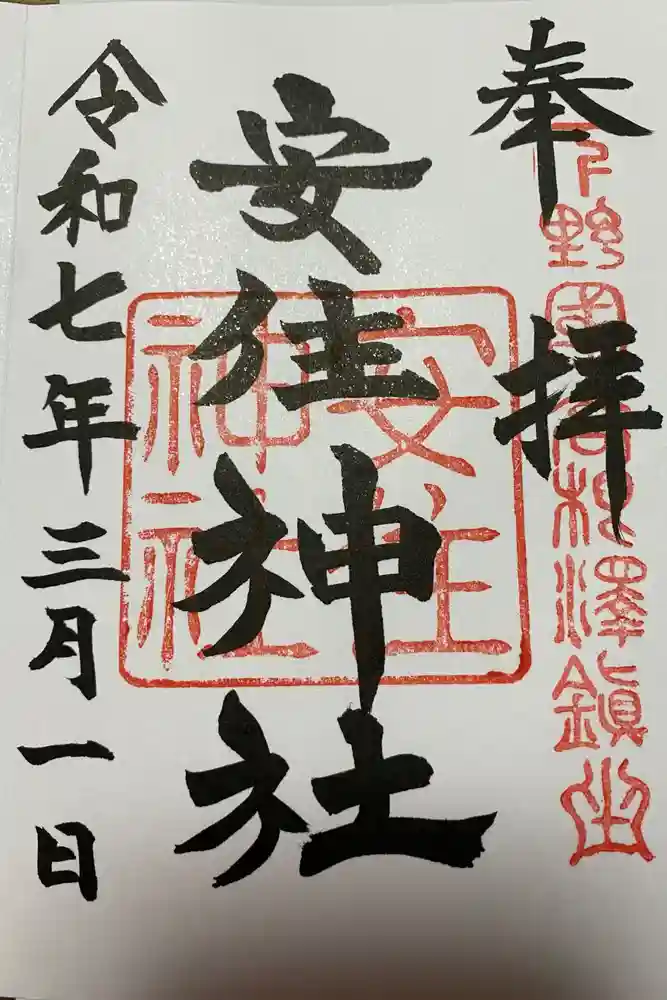 奉拝
下野國高根澤鎭坐
安住神社
安住神社
令和七年三月一日